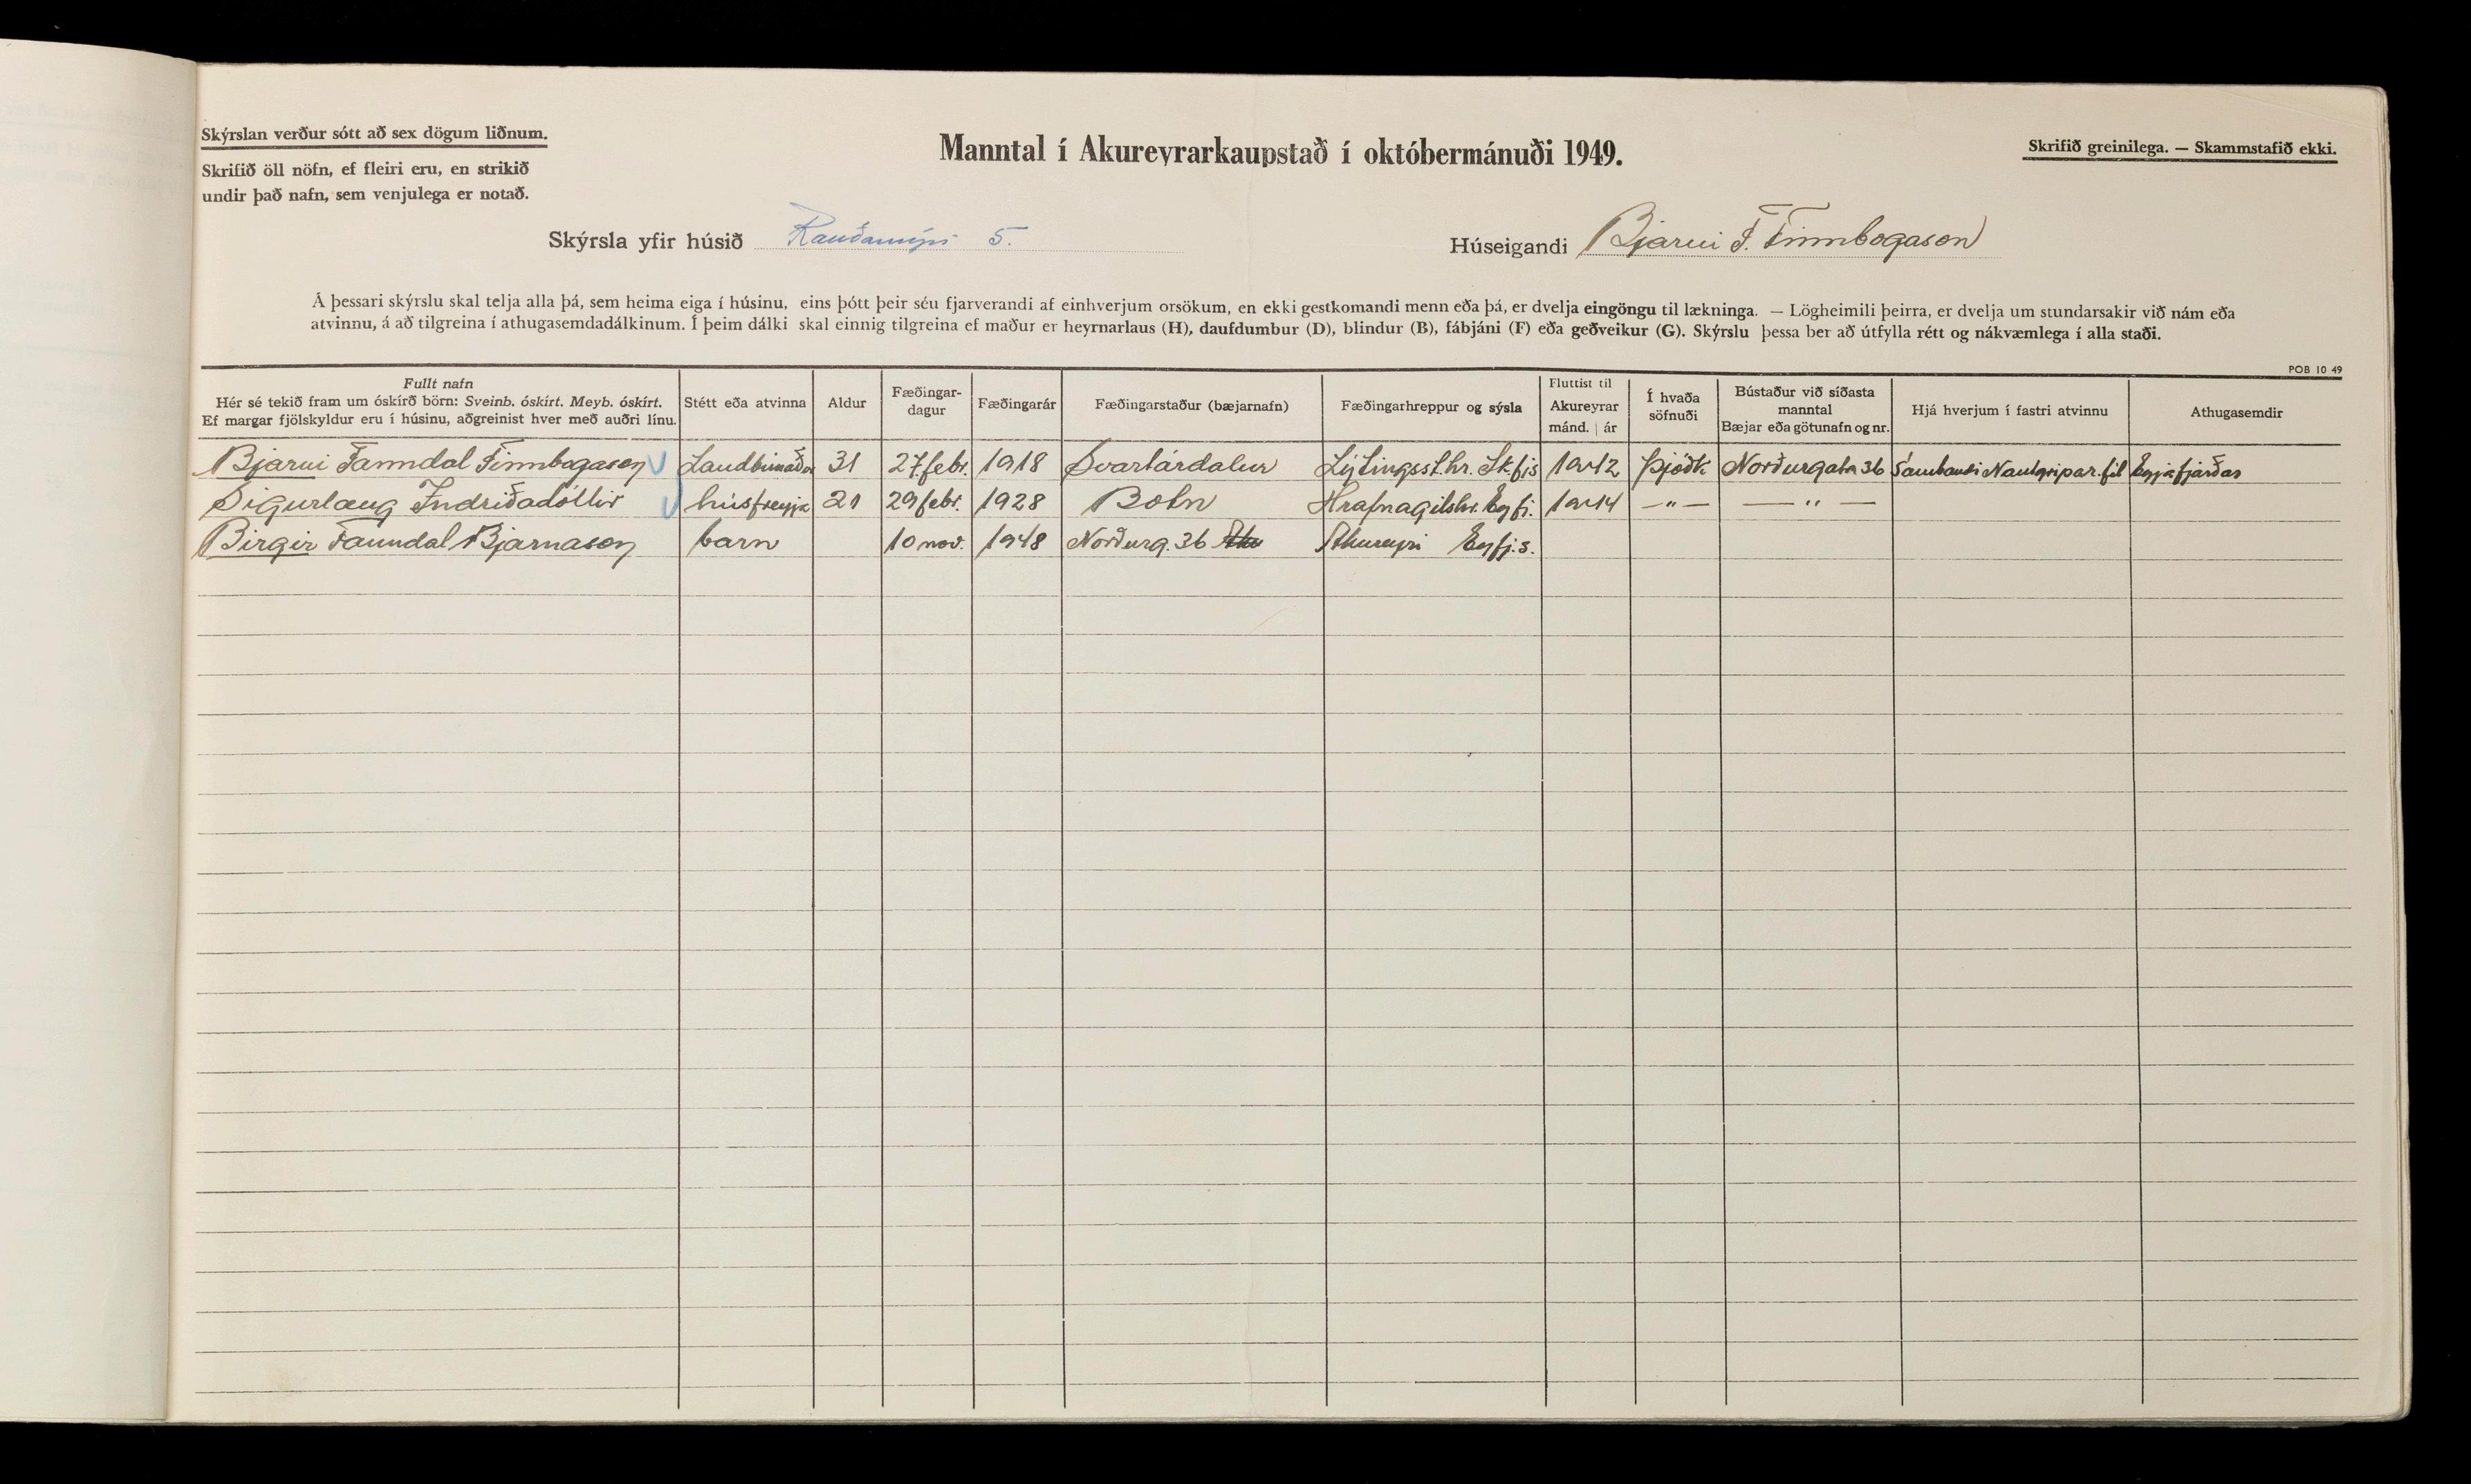 Skýrslan verður sótt að sex dögum liðnum.
Skrifið öll nöfn, ef fleiri eru, en strikið
undir það nafn, sem venjulega er notað.
Manntal í Akureyrarkaupstað í októbermánuði 1949.
Skrifið greinilega. — Skammstafið ekki.
Skýrsla yfir húsið Rauðamýri 5.
Húseigandi Bjarni F. Finnbogason
Á þessari skýrslu skal telja alla þá, sem heima eiga í húsinu, eins þótt þeir séu fjarverandi af einhverjum orsökum, en ekki gestkomandi menn eða þá, er dvelja eingöngu til lækninga. — Lögheimili þeirra, er dvelja um stundarsakir við nám eða
atvinnu, á að tilgreina í athugasemdadálkinum. Í þeim dálki skal einnig tilgreina ef maður er heyrnarlaus (H), daufdumbur (D), blindur (B), fábjáni (F) eða geðveikur (G). Skýrslu þessa ber að útfylla rétt og nákvæmlega í alla staði.
POB 10 49
Fullt nafn
Hér sé tekið fram um óskírð börn: Sveinb. óskírt. Meyb. óskírt.
Ef margar fjölskyldur eru í húsinu, aðgreinist hver með auðri línu.
Stétt eða atvinna
Aldur
Fæðingar-
dagur
Fæðingarár
Fæðingarstaður (bæjarnafn)
Fæðingarhreppur og sýsla
Fluttist til
Akureyrar
mánd. | ár
Í hvaða
söfnuði
Bústaður við síðasta
manntal
Bæjar eða götunafn og nr.
Hjá hverjum í fastri atvinnu
Athugasemdir
Bjarni Fanndal Finnbogason 31 27. febr. 1918 Svartárdalur Lýtingsst.hr. Sk.fjs Þjóðk Norðurgata 36 Sambandi Nautgripar.fél Eyjafjarðar
Sigurlaug Indriðadóttir húsfreyja 21 29 febr. 1928 Botn Hrafnagilshr. Eyfj. —"— —"—
Birgir Fanndal Bjarnason barn 10 nov. 1948 Norðurg. 36 Akureyri Eyfj.s.